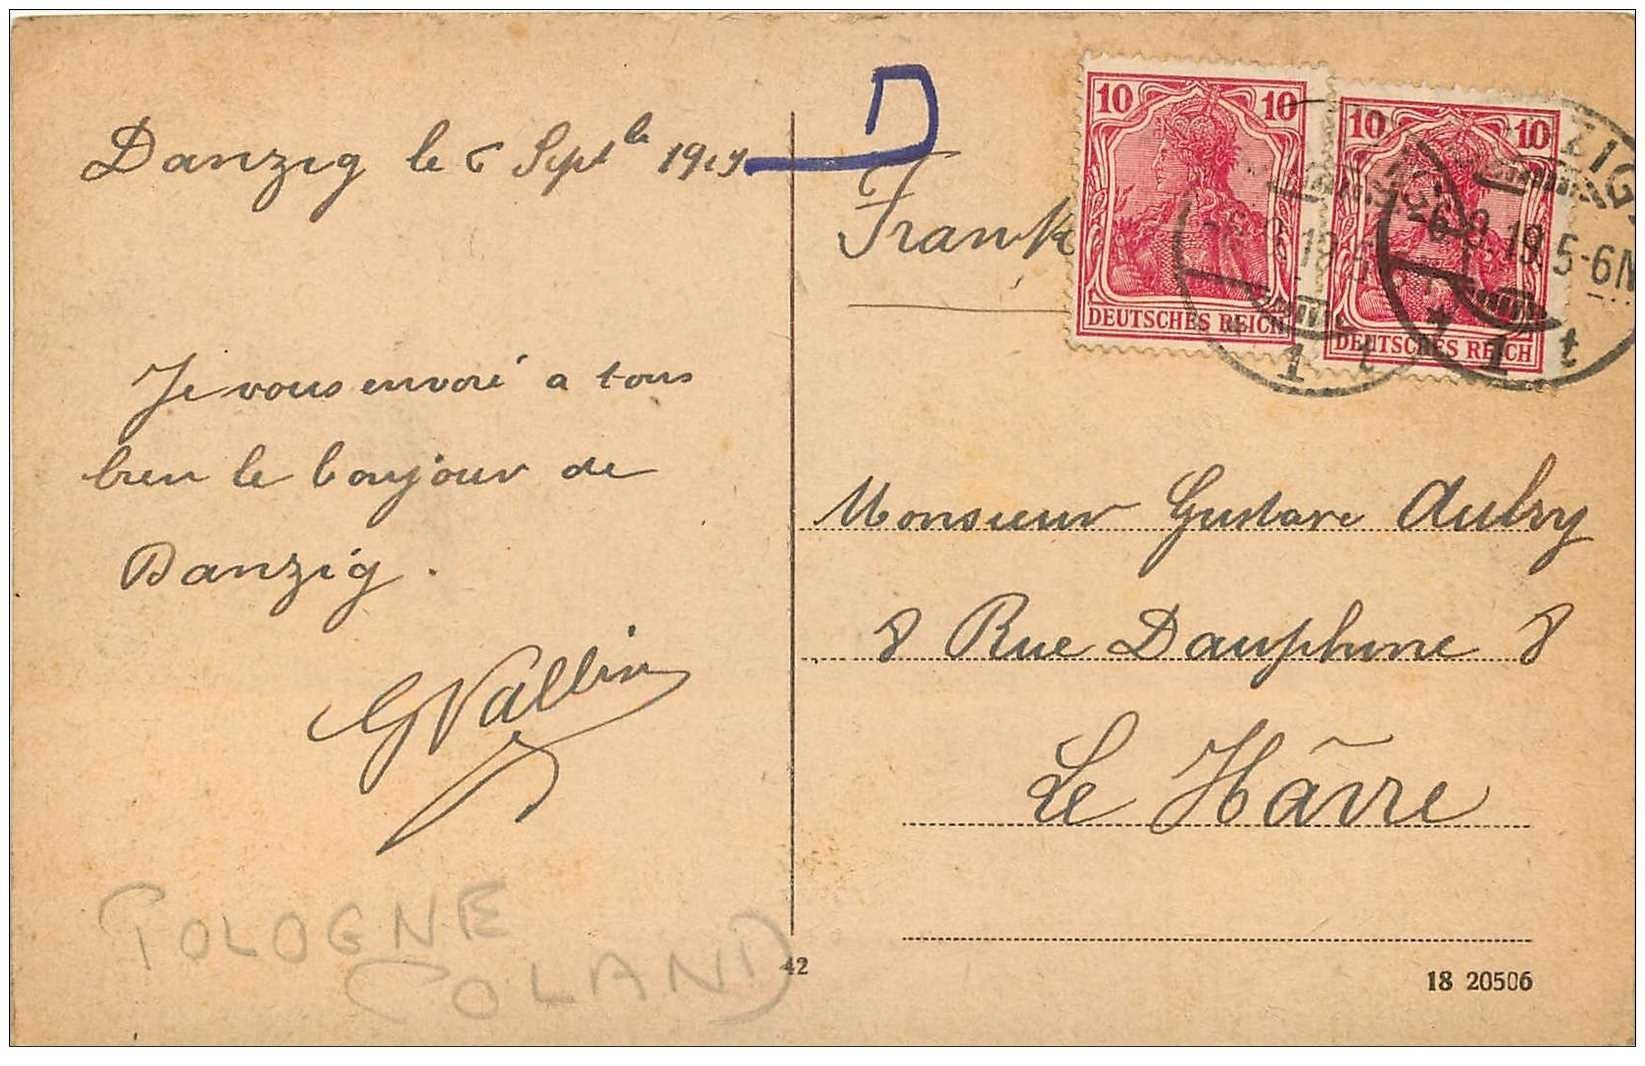 Danzig le 6 Sept 1919
Je vous envoie a tous
bien le bonjour de
Danzig.
GVallin
POLOGNE
POLAND
42
Frank
10 10
DEUTSCHES REICH
10 10
DEUTSCHES REICH
ZIG
6.9.19.5-6N
* 1 t
1 t
Monsieur Gustave Aubry
8 Rue Dauphine 8
Le Hâvre
18 20506